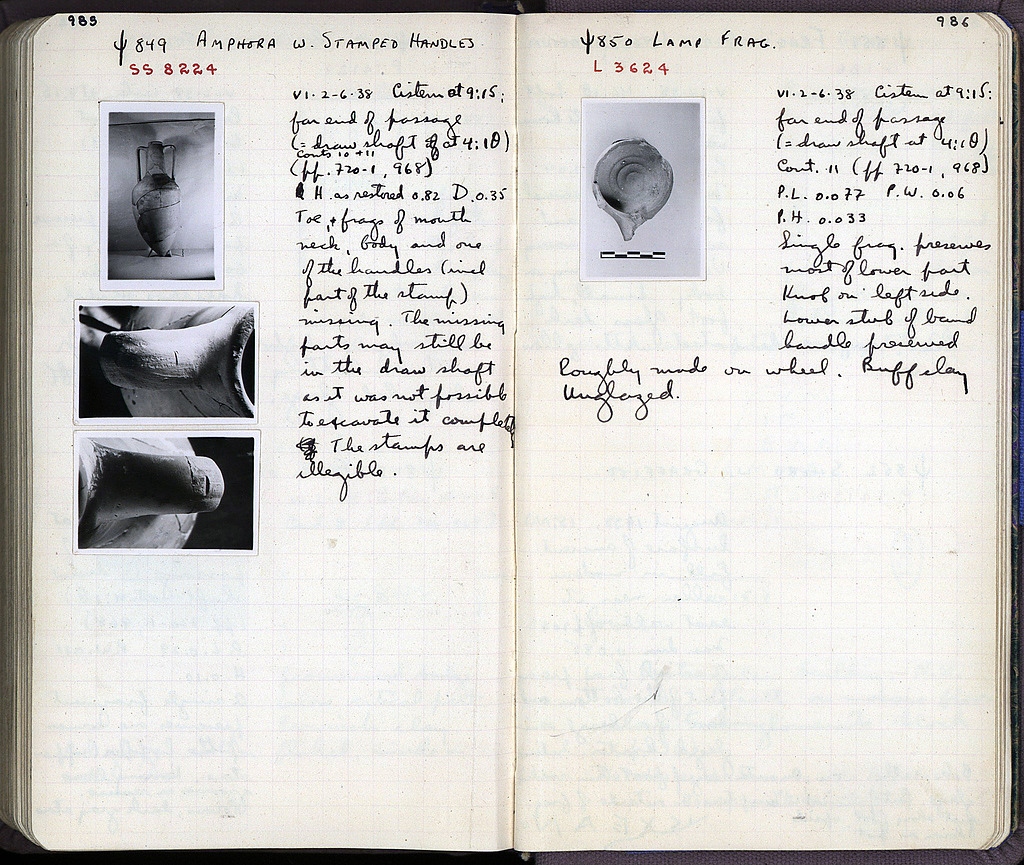 985
ψ 849 AMPHORA W. STAMPED HANDLES
SS 8224
VI·2-6·38 Cistern at 9:15;
far end of passage
(= draw shaft at 4:1Θ)
Conts 10 + 11
(pp. 720-1, 968)
H. as restored 0.82 D. 0.35
Toe, + frags of mouth
neck, body and one
of the handles (incl
part of the stamp)
missing. The missing
parts may still be
in the draw shaft
as it was not possible
to excavate it completely
The stamps are
illegible.
986
ψ850 LAMP FRAG.
L 3624
VI·2-6·38 Cistern at 9:15:
far end of passage
(= draw shaft at 4:1Θ)
Cont. 11 (pp 720-1, 968)
P.L. 0.077 P.W. 0.06
P.H. 0.033
Single frag. preserves
most of lower part
Knob on left side.
Lower stub of band
handle preserved
Roughly made on wheel. Buff clay
Unglazed.